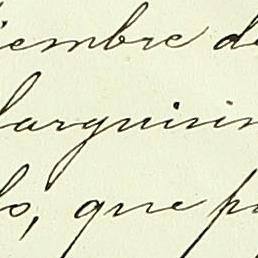 iembre de
larguisim
lo, que p